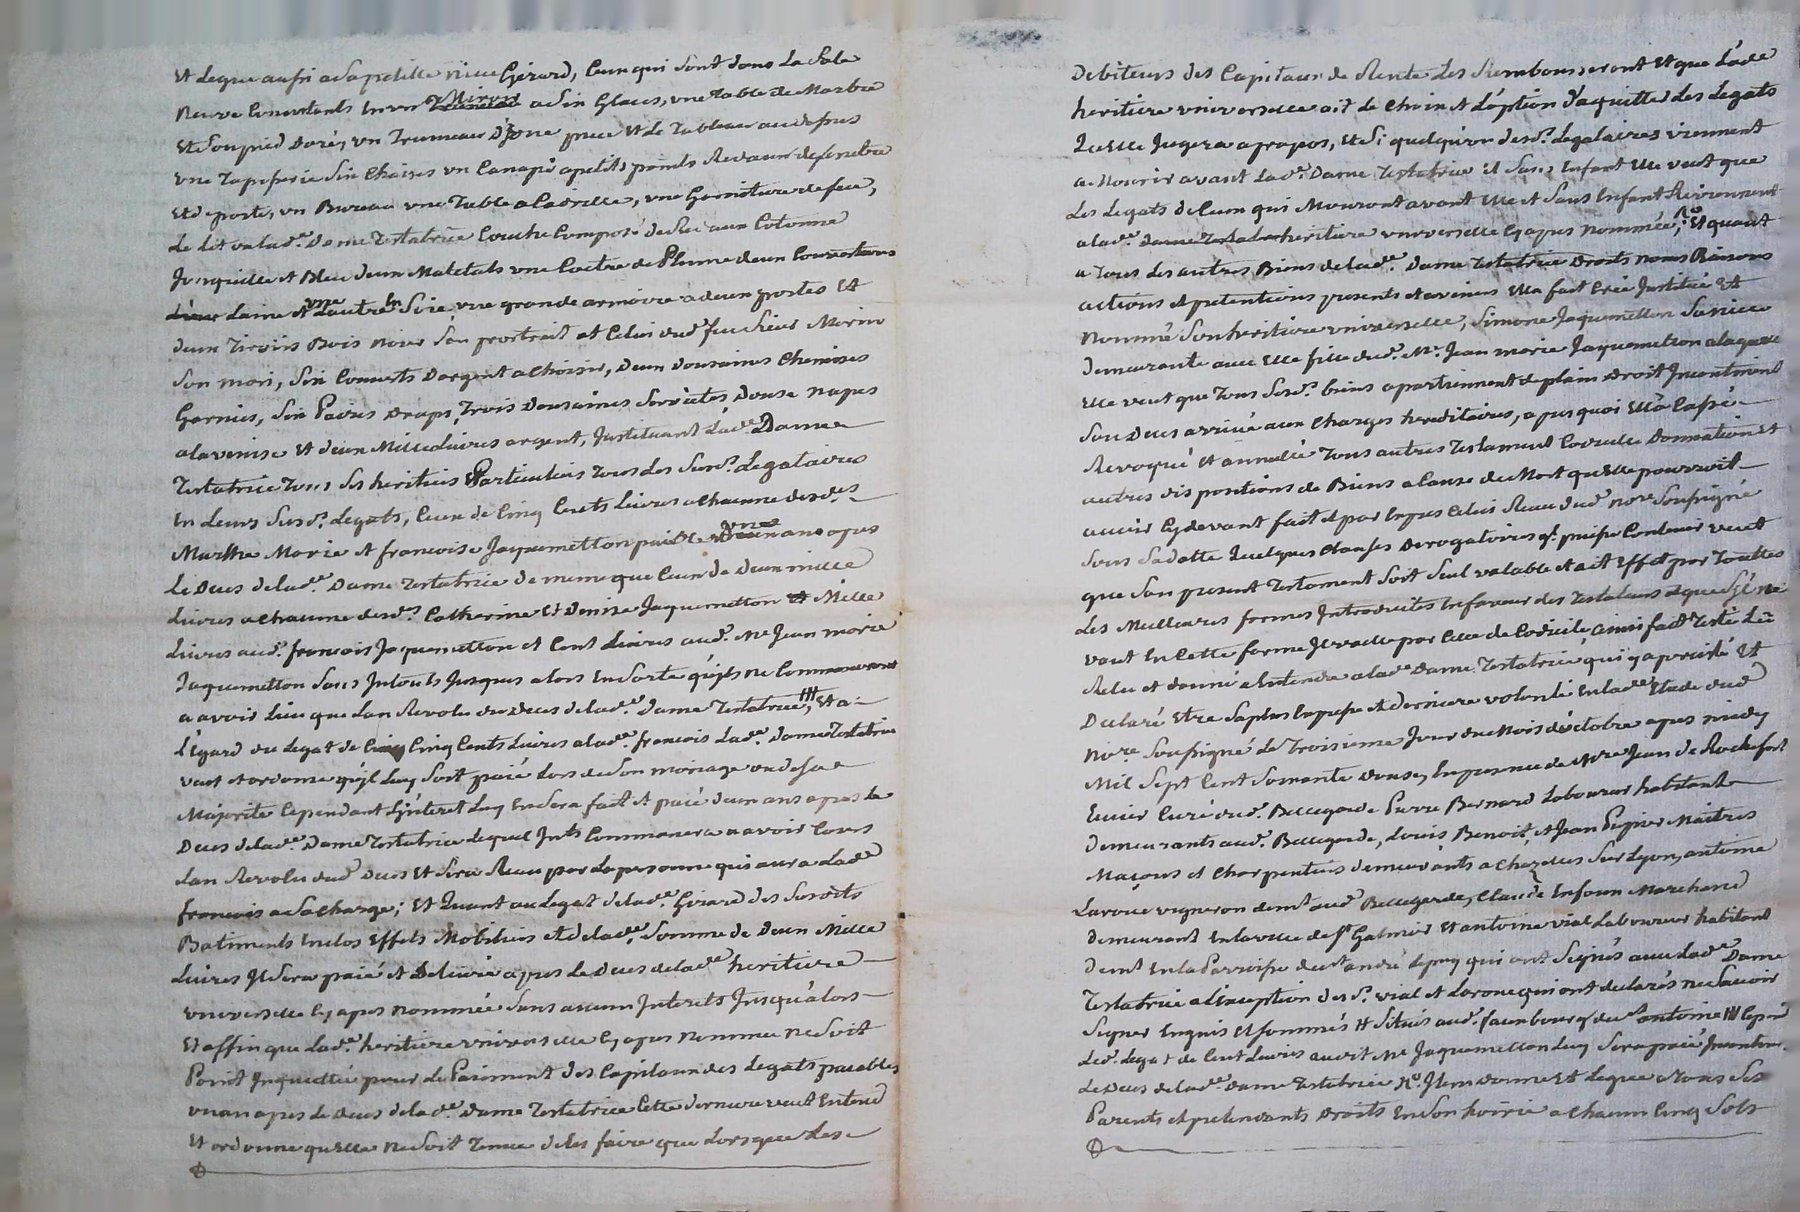 Et legue aussi a sa petitte niece Gerard, ceux qui sont dans la Sale
neuve Consistants En un Miroir a Six Glaces, une table de Marbre
Et Son pied Doré, un Trumeau D'une piece Et le Tableau au dessus
une Tapisserie Six Chaises un Canapé a petits points Rideaux de fenetre
Et de porte, un Bureau une Table a Cadrille, une Garniture de feu,
Le Lit où lad.e Dame Testatrice Couche Composé de Sa Colonne
Jonquille et Bleu deux Matelats une Coetre de Plume deux Couvertures
Laine et L'autre En Soie, une grande armoire a deux portes Et
deux Tiroirs Bois noier Son portrait et Celui dud. feu Sieur Morin
Son mari, Six Couverts D'argent a Choisir, Deux Dousaines Chemises
Garnies, Six Paires Draps, Trois Dousaines Serviettes, Douse napes
a la venise Et deux Mille Livres argent, Instituant lad.e Dame
Testatrice Tous Ses heritiers Particuliers Tous les Susd.s Legataires
En Leurs Susd.s Legats, Ceux de Cinq Cents Livres a Chacune desd.es
Marthe Marie et francoise Jaquemetton paiable une année apres
Le Deces de lad.e Dame Testatrice de meme que Ceux de Deux mille
Livres a Chacune desd.s Catherine Et Denise Jaquemetton Et Mille
Livres aud.s francois Jaquemetton et Cent Livres aud.s Me Jean marie
Jaquemetton Sans Interets Jusques alors En Sorte qu'jls ne Commanceront
a avoir Lieu que L'an Revolu du Deces de lad.e Dame Testatrice, Et a
L'Egard du Legat de Cinq Cents Livres a lad.e francois Lad.e Dame Testatrice
veut et ordonne qu'jl Luy Soit paié Lors de Son mariage ou de Sa
Majorité Cependant L'jnteret Luy En Sera fait et paié deux ans apres le
Deces de lad.e Dame Testatrice Lequel Jnt.s Commancera a avoir Cours
L'an Revolu dud. Deces Et Sera Reçu par La personne qui aura Lad.e
francois a Sa Charge; Et Quant au Legat de lad.e Gerard des Susdits
Batiments Enclos Effets Mobiliers Et de lad.e Somme de Deux Mille
Livres Jl Sera paié et Delivré apres Le Deces de lad.e heritiere
universelle Cy apres nommée Sans aucun Jnterets Jusqu'alors
Et affin que Lad.e heritiere universelle Cy apres nommée ne Soit
Point Jnquiettée pour Le Paiement des Capitaux des Legats paiables
un an apres le Deces de lad.e Dame Testatrice Cette derniere veut Entend
Et ordonne qu'Elle ne Soit Tenue de les faire que Lorsque Les
Debiteurs des Capitaux de Rente Les Rembourseront Et que Lad.e
heritiere universelle ait le Choix et L'option D'aquitter Les Legats
Qu'Elle Jugera apropos, Et Si quelqu'un desd.s Legataires viennent
a Mourir avant Lad.e Dame Testatrice et Sans Enfant Elle veut que
Les Legats de Ceux qui Mouront avant Elle et Sans Enfant Reviennent
a lad.e heritiere universelle Cy apres nommée, Et quant
a Tous Les autres Biens de lad.e Dame Testatrice Droits noms Raisons
actions et pretentions presents et avenirs Elle a fait Créé Jnstitué Et
Nommé Son heritiere universelle, Simone Jaquemetton Sa niece
demeurante avec Elle fille dud.s Me. Jean marie Jaquemetton a laquelle
Elle veut que Tous Sesd.s biens apartiennent de plain Droit Jncontinent
Son Deces arrivé aux Charges hereditaires, apres quoi Elle a Cassé
Revoqué Et annullé Tous autres Testament Codicille Donnation Et
autres dispositions de Biens a Cause de Mort qu'Elle pourroit
avoir Cy devant fait et par Expres Celui Reçu dud. no.re Soussigné
Sous Sa datte Quelques Clauses Derogatoires q'l puisse Contenir veut
que Son present Testament Soit Seul valable et ait Effet par Touttes
Les Meilleures formes Jntroduites En faveur des Testateurs et que S'jl ne
vaut En Cette forme Jl vaille par Celle de Codicile ainsi fait Testé Lû
Relu et donné a Entendre a lad.e Dame Testatrice qui y a persisté Et
Declaré Etre Sa plus Expresse et derniere volonté En lad.e Etude dud.
No.re Soussigné Le Troisieme Jour du Mois d'octobre apres midy
Mil Sept Cent Soixante Douse, En presence de Mre Jean de Rochefort
Curé dud.s Bellegarde Pierre Bernard Laboureur habitant
demeurants aud.s Bellegarde, Louis Benoit, et Jean Maitres
Maçons et Charpentiers demeurants a Chazelles Sur Lyon, antoine
Laroue vigneron dem.t aud. Bellegarde, Claude Marchand
demeurant En la ville de St Galmier Et antoine vial Laboureur habitant
dem.t En la Parroisse de St andré Le puy qui ont Signés avec Lad.e Dame
Testatrice a l'exception des S.s vial et Laroue qui ont declarés ne Savoir
Signer Enquis et Sommés Situés aud.s fauxbourg de St antoine
Led.s Legat de Cent Livres audit Me Jaquemetton Luy Sera paié
Le Deces de lad.e Dame Testatrice Jtem donne Et Legue a Tous Ses
Parents et pretendants Droits En Son hoirie a Chacun Cinq Sols